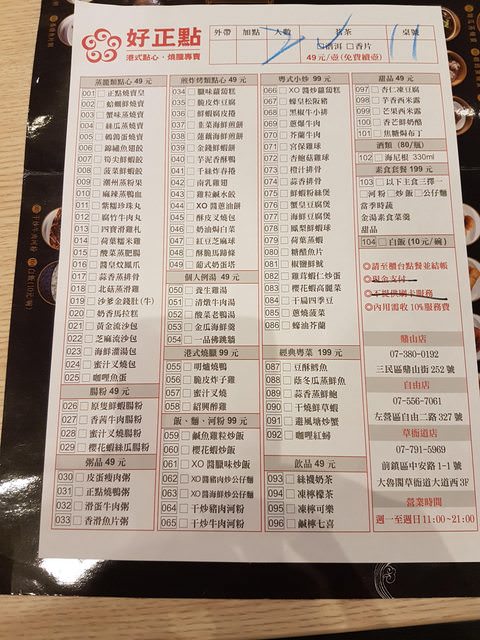 好正點
港式點心・燒臘專賣
外帶 加點 人數 點茶 桌號
普洱 香片
49元/壺(免費續壺)
11
蒸籠類點心 49元
001 正點燒賣皇
002 蛤蠣鮮燒賣
003 蟹味蒸燒賣
004 絲瓜蒸燒賣
005 鵪鶉蛋燒賣
006 錦繡魚翅餃
007 筍尖鮮蝦餃
008 菠菜鮮蝦餃
009 潮州蒸粉果
010 麻辣蒸魚血
011 紫糯珍珠丸
012 腐竹牛肉丸
013 四寶滑雞札
014 荷葉糯米雞
015 酸菜蒸肥腸
016 醬皇炆鳳爪
017 蒜香蒸排骨
018 北菇蒸滑雞
019 沙爹金錢肚(牛)
020 奶香馬拉糕
021 黃金流沙包
022 芝麻流沙包
023 海鮮灌湯包
024 蜜汁叉燒包
025 咖哩魚蛋
腸粉 49元
026 原隻鮮蝦腸粉
027 香茜牛肉腸粉
028 蜜汁叉燒腸粉
029 櫻花蝦絲瓜腸粉
粥品 49元
030 皮蛋瘦肉粥
031 正點燒鴨粥
032 滑蛋牛肉粥
033 香滑魚片粥
煎炸烤類點心 49元
034 臘味蘿蔔糕
035 脆皮炸豆腐
036 鮮蝦腐皮捲
037 韭菜海鮮煎餅
038 菠蘿海鮮煎餅
039 金錢鮮蝦餅
040 芋泥香酥鴨
041 千絲炸春捲
042 南乳雞翅
043 雞粒鹹水餃
044 XO醬蔥油餅
045 酥皮叉燒包
046 奶油焗白菜
047 紅豆芝麻球
048 酥脆馬蹄條
049 葡式奶蛋塔
個人例湯 49元
050 養生雞湯
051 清燉牛肉湯
052 酸菜老鴨湯
053 金瓜海鮮羹
054 一品佛跳牆
港式燒臘 99元
055 明爐燒鴨
056 脆皮炸子雞
057 蜜汁叉燒
058 紹興醉雞
飯、麵、河粉 99元
059 鹹魚雞粒炒飯
060 櫻花蝦炒飯
061 XO醬臘味炒飯
062 XO醬豬肉炒公仔麵
063 XO醬海鮮炒公仔麵
064 干炒豬肉河粉
065 干炒牛肉河粉
粵式小炒 99元
066 XO醬炒蘿蔔糕
067 蠔皇松阪豬
068 黑椒牛小排
069 蔥爆牛肉
070 芥蘭牛肉
071 宮保雞球
072 杏鮑菇雞球
073 橙汁排骨
074 蒜香排骨
075 鮮蝦粉絲煲
076 蟹皇豆腐煲
077 海鮮豆腐煲
078 鳳梨鮮蝦球
079 荷葉蒸蝦
080 糖醋魚片
081 椒鹽鮮魷
082 雞茸蝦仁炒蛋
083 櫻花蝦高麗菜
084 干扁四季豆
085 蔥燒菠菜
086 蠔油芥蘭
經典粵菜 199元
087 豆酥鱈魚
088 蔭冬瓜蒸鮮魚
089 蒜香蒸鮮鮑
090 干燒鮮草蝦
091 避風塘炒蟹
092 咖哩紅蟳
飲品 49元
093 絲襪奶茶
094 凍檸檬茶
095 凍檸可樂
096 鹹檸七喜
甜品 49元
097 杏仁凍豆腐
098 芋香西米露
099 芒果西米露
100 香芒鮮奶酪
101 焦糖焗布丁
酒類 (80/瓶)
102 海尼根 330ml
素食套餐 199元
103 以下主食三擇一
河粉 炒飯 公仔麵
當季時蔬
金湯素食菜羹
甜品
104 白飯 (10元/碗)
◎請至櫃台點餐並結帳
◎現金支付
◎不提供刷卡服務
◎內用需收10%服務費
鼎山店
07-380-0192
三民區鼎山街252號
自由店
07-556-7061
左營區自由二路327號
草衙道店
07-791-5969
前鎮區中安路1-1號
大魯閣草衙道大道西3F
營業時間
週一至週日11:00~21:00